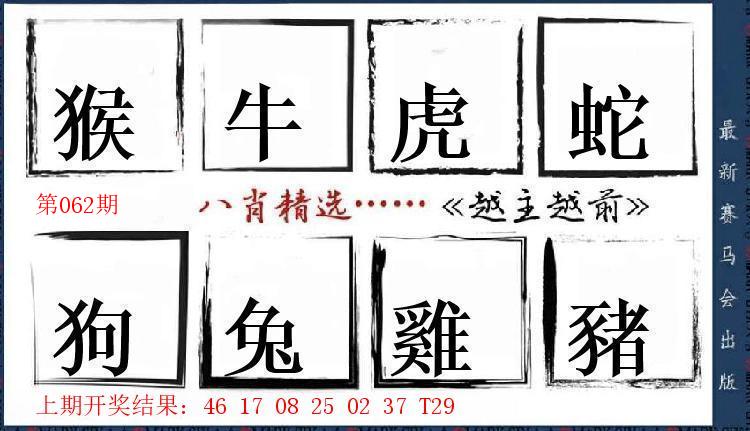 猴 牛 虎 蛇
第062期 八肖精选……《越主越前》
狗 兔 雞 豬
上期开奖结果：46 17 08 25 02 37 T29
最新赛马会出版